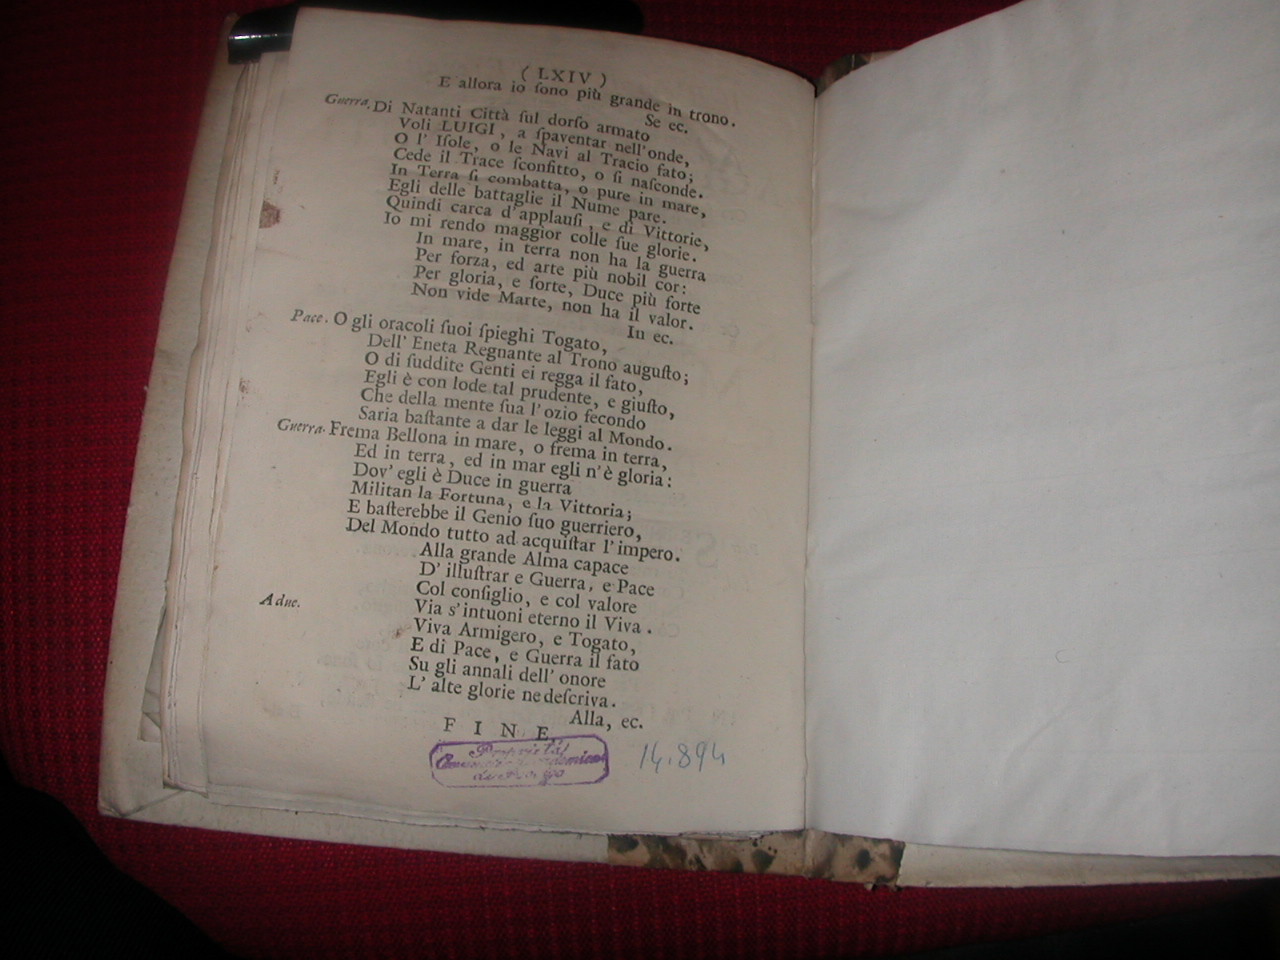 ( LXIV )
E allora io ſono più grande in trono.
Se ec.
Guerra. Di Natanti Città ſul dorſo armato
Voli LUIGI, a ſpaventar nell'onde,
O l' Iſole, o le Navi al Tracio fato;
Cede il Trace ſconfitto, o ſi naſconde.
In Terra ſi combatta, o pure in mare,
Egli delle battaglie il Nume pare.
Quindi carca d'applauſi, e di Vittorie,
Io mi rendo maggior colle ſue glorie.
In mare, in terra non ha la guerra
Per forza, ed arte più nobil cor:
Per gloria, e forte, Duce più forte
Non vide Marte, non ha il valor.
In ec.
Pace. O gli oracoli ſuoi ſpieghi Togato,
Dell' Eneta Regnante al Trono auguſto;
O di ſuddite Genti ei regga il fato,
Egli è con lode tal prudente, e giuſto,
Che della mente ſua l'ozio fecondo
Saria baſtante a dar le leggi al Mondo.
Guerra. Frema Bellona in mare, o frema in terra,
Ed in terra, ed in mar egli n'è gloria:
Dov' egli è Duce in guerra
Militan la Fortuna, e la Vittoria;
E baſterebbe il Genio ſuo guerriero,
Del Mondo tutto ad acquiſtar l'impero.
Alla grande Alma capace
D' illuſtrar e Guerra, e Pace
Col conſiglio, e col valore
A due. Via s'intuoni eterno il Viva.
Viva Armigero, e Togato,
E di Pace, e Guerra il fato
Su gli annali dell' onore
L' alte glorie ne deſcriva.
Alla, ec.
F I N E.
Proprietà
14.894